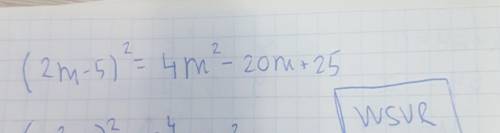 (2m-5)² = 4m² - 20m + 25
WSVR